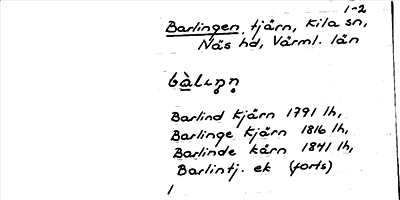 1-2
Barlingen, tjärn, Kila sn,
Näs hd, Värml. län
Barlind Kjärn 1791 lh,
Barlinge Kjärn 1816 lh,
Barlinde kärn 1841 lh,
Barlintj. ek (forts)
1